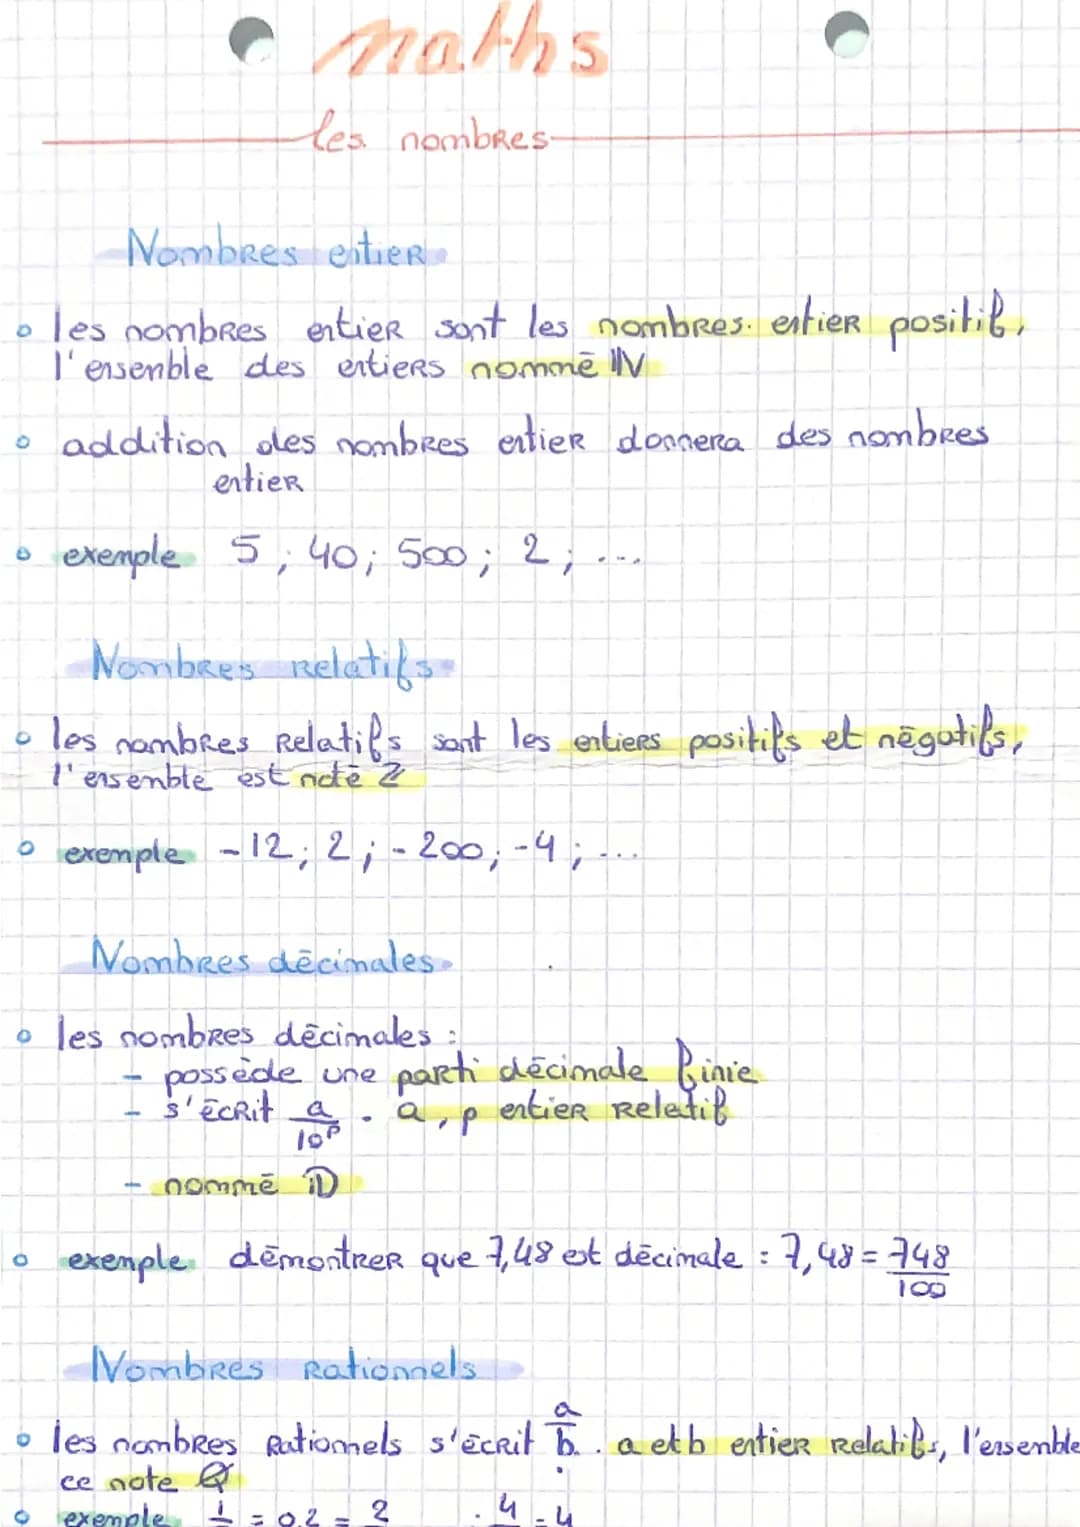 maths
les nombres
Nombres entier
les nombres entier sont les nombres entier positif,
l'ensemble des entiers nommé ℕ
addition des nombres entier donnera des nombres
entier
exemple 5 ; 40 ; 500 ; 2 ; ...
Nombres relatifs
les nombres relatifs sont les entiers positifs et négatifs,
l'ensemble est noté ℤ
exemple -12 ; 2 ; -200 ; -4 ; ...
Nombres décimales
les nombres décimales :
- possède une parti décimale finie
- s'écrit a/10^p . a, p entier relatif
- nommé 𝔻
exemple démontrer que 7,48 est décimale : 7,48 = 748/100
Nombres rationnels
les nombres rationnels s'écrit a/b . a et b entier relatifs, l'ensemble
ce note ℚ
exemple = 0,2 = 2 4 = 4